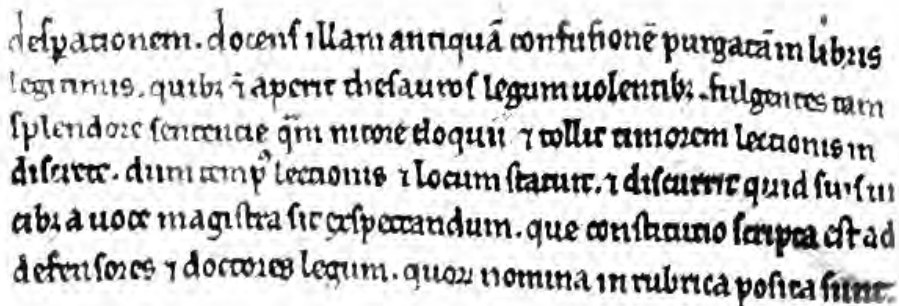 desꝑationem. docens illam antiquā confusionē purgatā in libris
legitimis. quibꝫ ī aperit thesauros legum uolentibꝫ. fulgentes tam
splendore sententie q̄m nitore eloquii ⁊ tollit timorem lectionis in
discrete. dum temp᷒ lectionis ⁊ locum statuit. ⁊ discutit quid sit
a uoce magistra sic exspectandum. que constitutio scripta est ad
defensores ⁊ doctores legum. quoꝝ nomina in rubrica posita sunt.